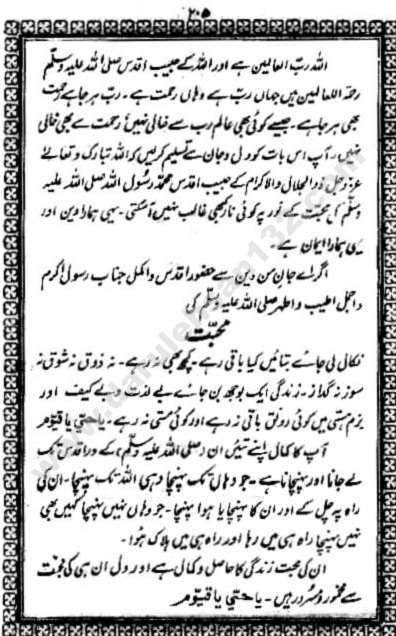 ۲۰۵
اللہ ربّ العالمین ہے اور اللہ کے حبیب اقدس صلی اللہ علیہ وسلّم
رحمۃ اللعالمین ہیں جہاں ربّ ہے وہاں رحمت ہے۔ ربّ ہر جا ہے رحمت
بھی ہر جا ہے۔ جیسے کوئی بھی عالم ربّ سے خالی نہیں رحمت سے بھی خالی
نہیں۔ آپ اس بات کو دل و جان سے تسلیم کر لیں کہ اللہ تبارک و تعالےٰ
عزوجل ذوالجلال والاکرام کے حبیب اقدس محمّد رسُول اللہ صلی اللہ علیہ
وسلّم کی محبّت کے نور پہ کوئی نار کبھی غالب نہیں آسکتی۔ یہی ہمارا دین اور
یہی ہمارا ایمان ہے۔
اگر اے جانِ من دین سے حضور اقدس و اکمل جناب رسول اکرم
و اجمل اطیب و اطہر صلی اللہ علیہ وسلّم کی
محبّت
نکال لی جائے بتائیں کیا باقی رہے۔ کچھ بھی نہ رہے۔ نہ ذوق نہ شوق نہ
سوز نہ گداز۔ زندگی ایک بوجھ بن جائے بے لذت و بے کیف اور
بزم ہستی میں کوئی رونق باقی نہ رہے اور کوئی مستی نہ رہے۔ یا حیّ یا قیّوم
آپ کا کمال اپنے تئیں ان (صلی اللہ علیہ وسلّم) کے در اقدس تک
لے جانا اور پہنچانا ہے۔ جو وہاں تک پہنچا وہی اللہ تک پہنچا۔ ان کی
راہ پہ چل کے اور ان کا پہنچایا ہوا پہنچا۔ جو وہاں نہیں پہنچا کہیں بھی
نہیں پہنچا راہ ہی میں رہا اور راہ ہی میں ہلاک ہُوا۔
ان کی محبت زندگی کا حاصل و کمال ہے اور دل ان ہی کی محبّت
سے مخمور و مسرُور رہیں۔ یا حیّ یا قیّوم
www.darulehsan132.com